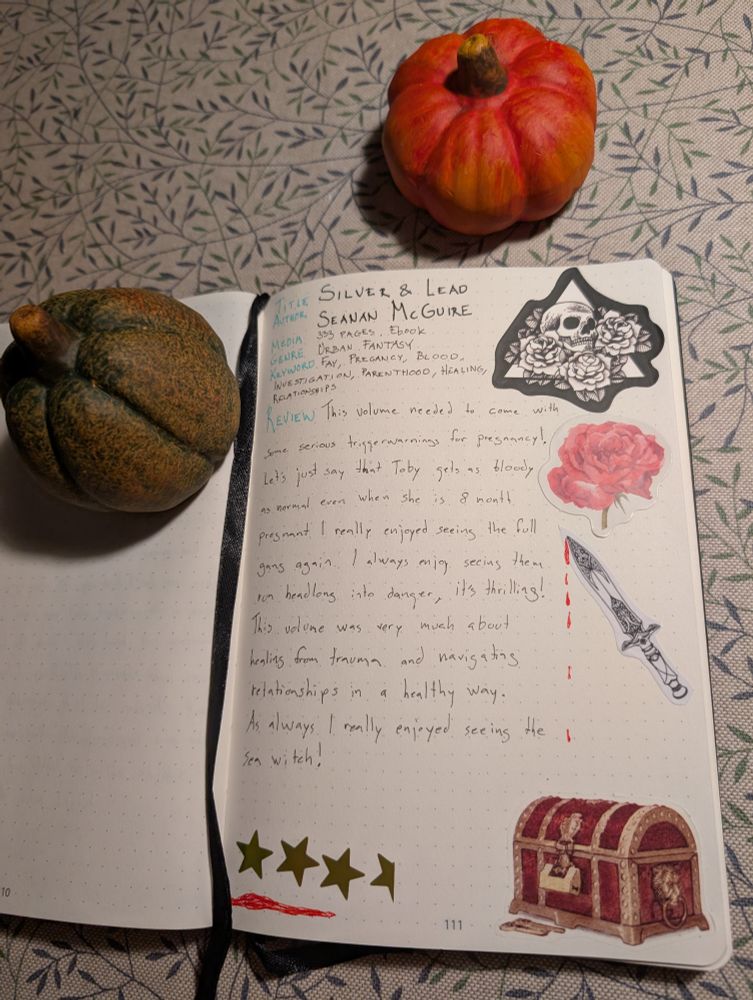 Title Silver & Lead
Author Seanan McGuire
Media 333 pages, Ebook
Genre Urban Fantasy
Keyword Fay, Pregancy, Blood,
Investigation, Parenthood, Healing,
Relationships
Review This volume needed to come with
some serious triggerwarnings for pregnancy!
Let's just say that Toby gets as bloody
as normal even when she is 8 month
pregnant. I really enjoyed seeing the full
gang again. I always enjoy seeing them
run headlong into danger, it's thrilling!
This volume was very much about
healing from trauma and navigating
relationships in a healthy way.
As always I really enjoyed seeing the
sea witch!
10
111